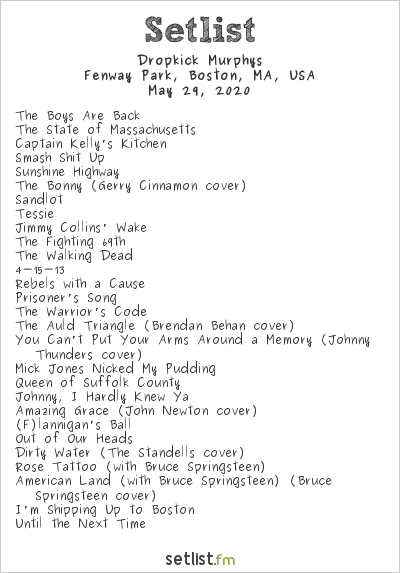 Setlist
Dropkick Murphys
Fenway Park, Boston, MA, USA
May 29, 2020
The Boys Are Back
The State of Massachusetts
Captain Kelly's Kitchen
Smash Shit Up
Sunshine Highway
The Bonny (Gerry Cinnamon cover)
Sandlot
Tessie
Jimmy Collins' Wake
The Fighting 69th
The Walking Dead
4-15-13
Rebels with a Cause
Prisoner's Song
The Warrior's Code
The Auld Triangle (Brendan Behan cover)
You Can't Put Your Arms Around a Memory (Johnny
Thunders cover)
Mick Jones Nicked My Pudding
Queen of Suffolk County
Johnny, I Hardly Knew Ya
Amazing Grace (John Newton cover)
(F)lannigan's Ball
Out of Our Heads
Dirty Water (The Standells cover)
Rose Tattoo (with Bruce Springsteen)
American Land (with Bruce Springsteen) (Bruce
Springsteen cover)
I'm Shipping Up to Boston
Until the Next Time
setlist.fm